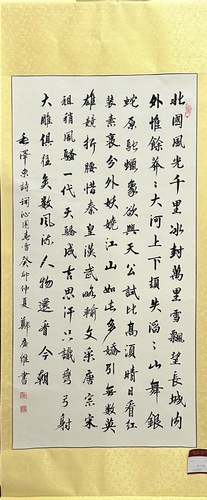 北國風光千里冰封萬里雪飄望長城内
外惟餘莽〻大河上下頓失滔〻山舞銀
蛇原馳蠟象欲與天公試比高須晴日看紅
装素裹分外妖嬈江山如此多嬌引無數英
雄競折腰惜秦皇漢武略輸文采唐宗宋
祖稍風騷一代天驕成吉思汗只識彎弓射
大雕俱往矣數風流人物還看今朝
毛澤東詩詞沁園春雪癸卯仲夏鄭廣維書